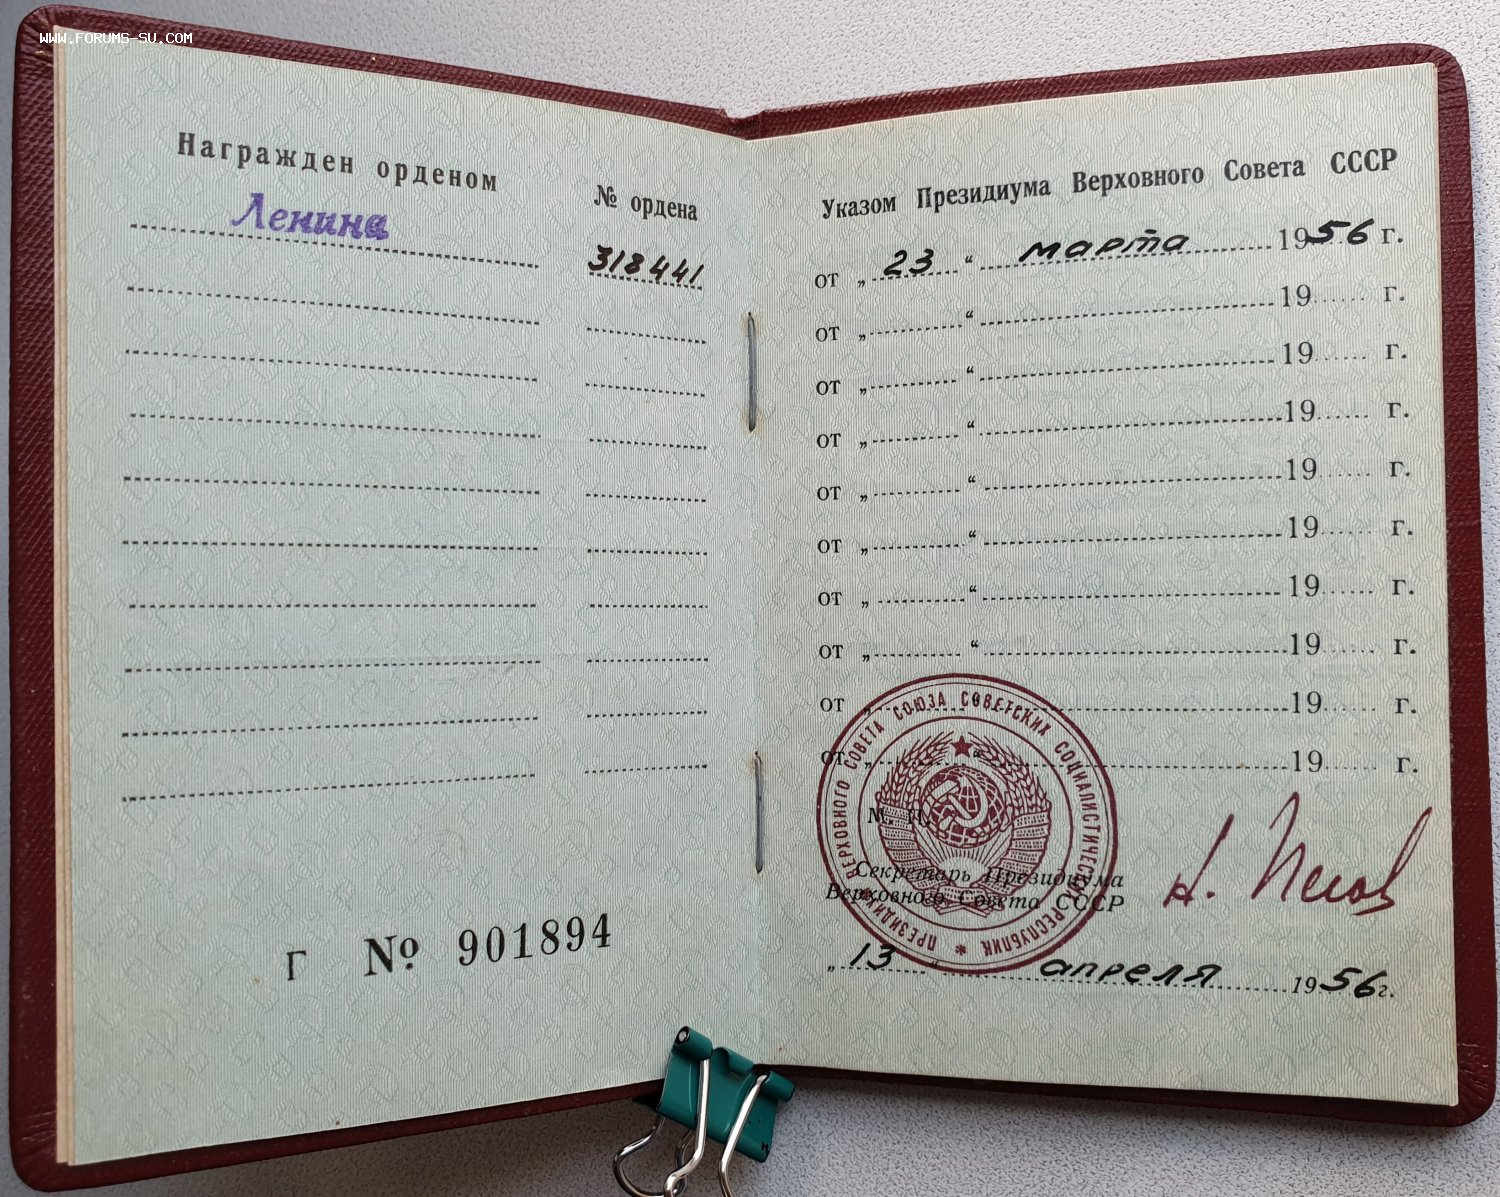 WWW.FORUMS-SU.COM
Награжден орденом
№ ордена
Ленина
318441
Г № 901894
Указом Президиума Верховного Совета СССР
от „ 23 “ марта 1956 г.
от „ “ 19 г.
от „ “ 19 г.
от „ “ 19 г.
от „ “ 19 г.
от „ “ 19 г.
от „ “ 19 г.
от „ “ 19 г.
от „ “ 19 г.
от „ “ 19 г.
ПРЕЗИДИУМ ВЕРХОВНОГО СОВЕТА СОЮЗА СОВЕТСКИХ СОЦИАЛИСТИЧЕСКИХ РЕСПУБЛИК
М. П.
Секретарь Президиума
Верховного Совета СССР
Н. Пегов
„ 13 “ апреля 1956 г.